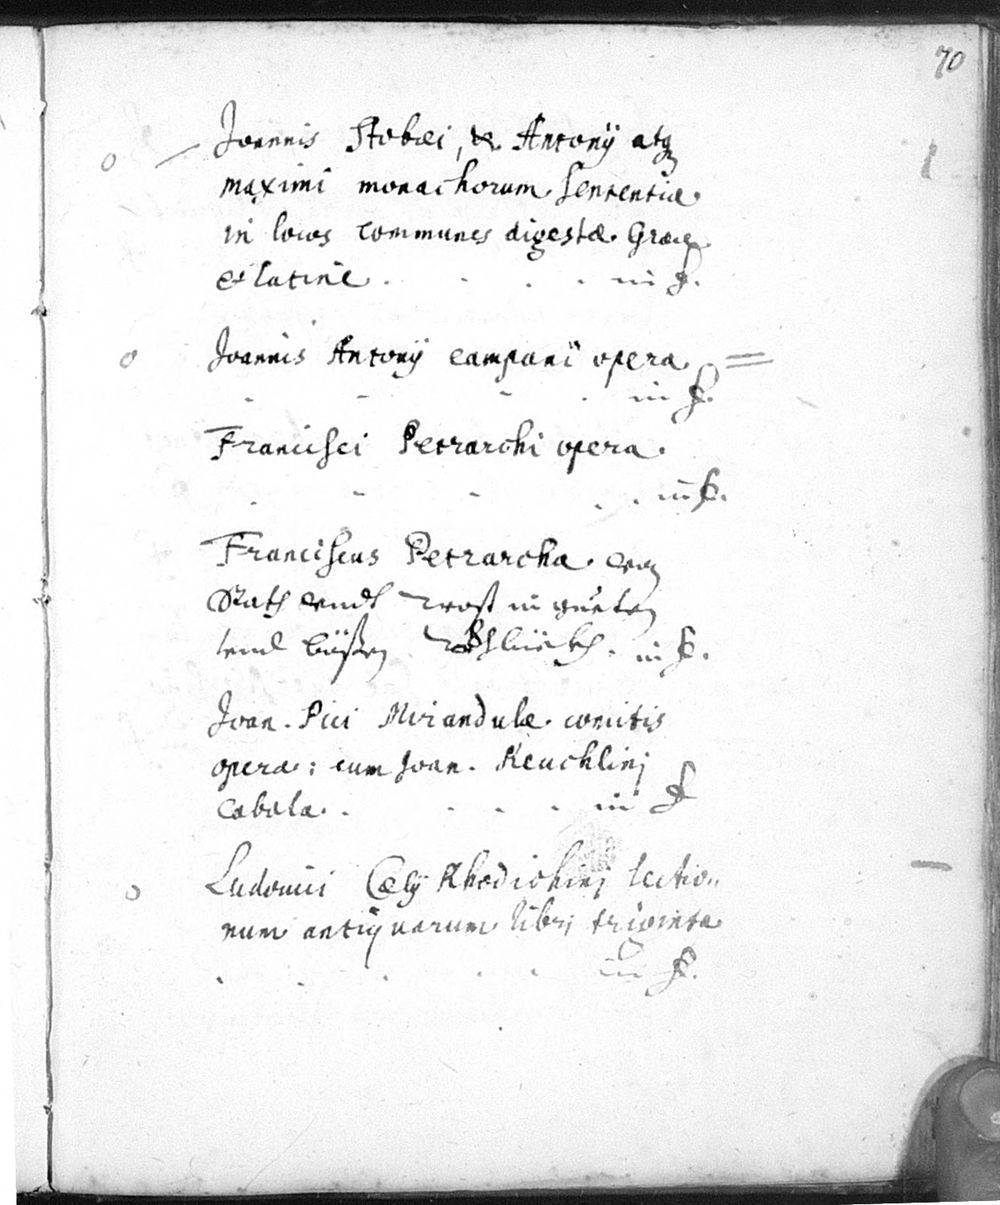 70
Joannis Stobæi, & Antonÿ atq
maximi monachorum sententiæ
in locos communes digestæ. Græcę
et latinè . . . . in f.
Joannis Antonÿ campani opera
. . . . in f.
Francisci Petrarchi opera.
. . . . . in f.
Franciscus Petrarcha. von
Rath vnndt Trost in gueten
vnnd bößen. in f.
Joan. Pici Mirandulæ. comitis
opera: cum Joan. Reuchlinj
cabala. . . . . in f
Ludouici Cælÿ Rhodichinj lectio„
num antiquarum librj triginta
. . . . . in f.